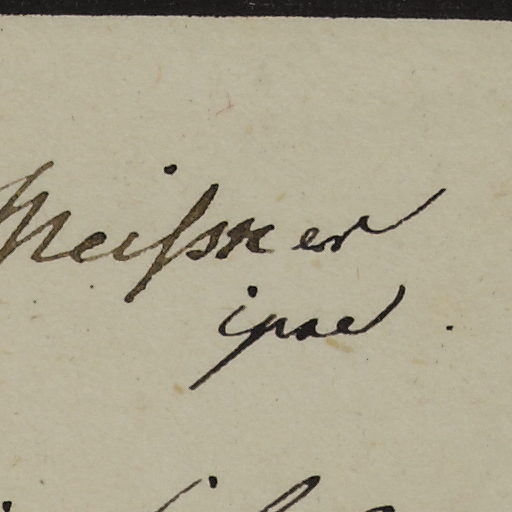 Meißner
ipse.